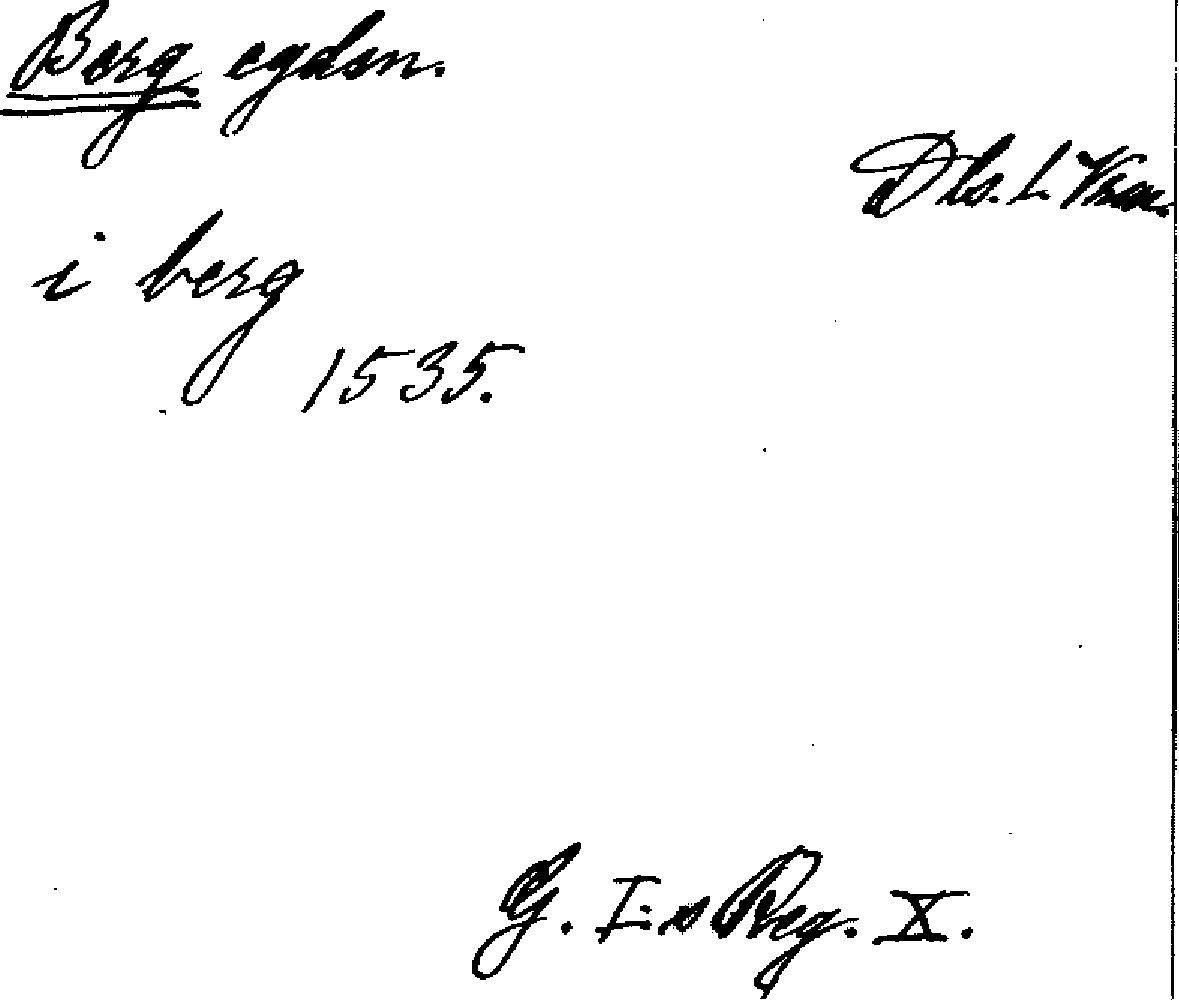 Berg egdsn.
Dls. L.
i berg
1535.
G. I:s Reg. X.